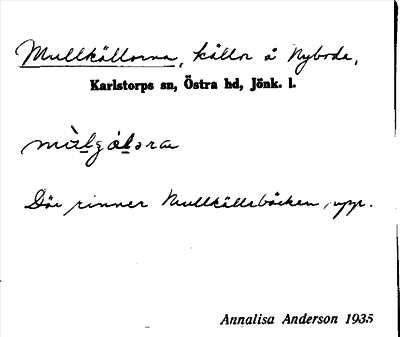 Mullkällorna, källor å Nyboda,
Karlstorps sn, Östra hd, Jönk. l.
Där rinner Mullkällebäcken upp.
Annalisa Anderson 1935